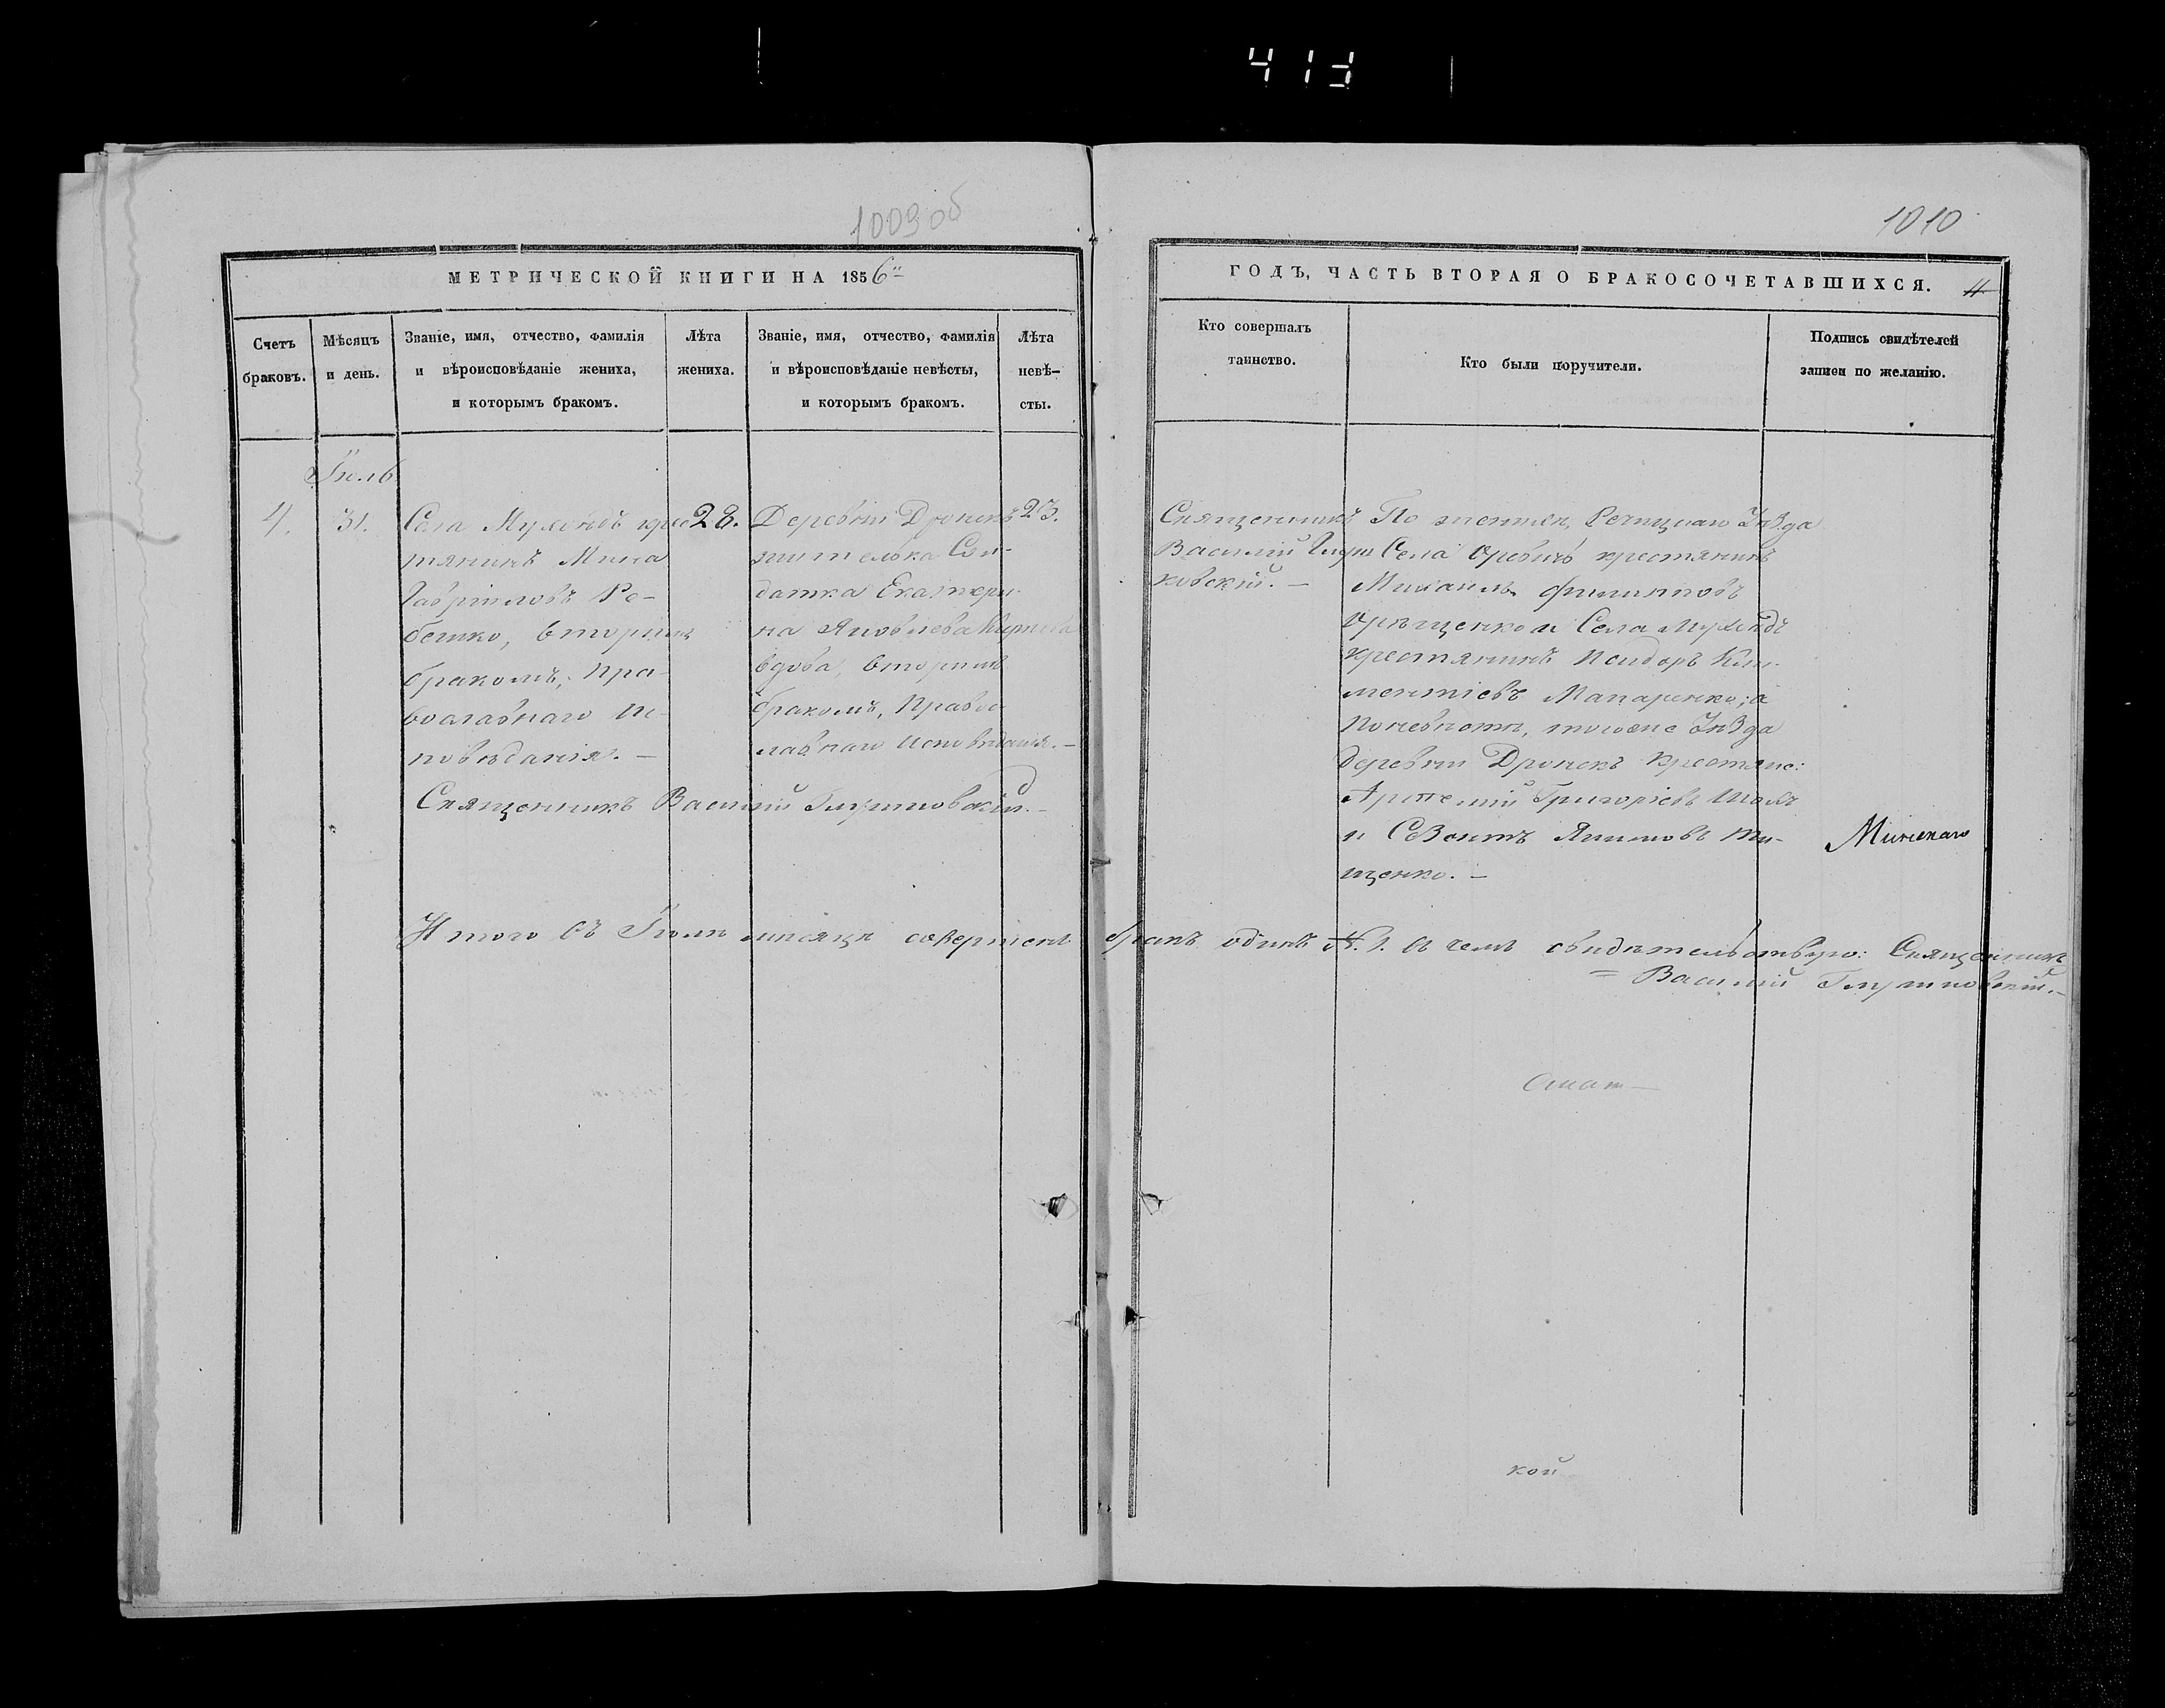 413
1009 об
1010
МЕТРИЧЕСКОЙ КНИГИ НА 1856й
ГОДЪ, ЧАСТЬ ВТОРАЯ О БРАКОСОЧЕТАВШИХСЯ. 11
Счетъ браковъ.
Мѣсяцъ и день.
Званіе, имя, отчество, фамилія
и вѣроисповѣданіе жениха,
и которымъ бракомъ.
Лѣта
жениха.
Званіе, имя, отчество, фамилія
и вѣроисповѣданіе невѣсты,
и которымъ бракомъ.
Лѣта
невѣ-
сты.
Кто совершалъ
таинство.
Кто были поручители.
Подпись свидѣтелей
записи по желанію.
Іюль
4.
31.
Села Мухоѣдъ крес
тянинъ Мина
Гавріиловъ Ре-
бенко, вторымъ
бракомъ, Пра-
вославнаго Ис-
повѣданія. —
28.
Деревни Дронекъ
жителька Сол-
датка Екатери-
на Яковлева
вдова, вторымъ
бракомъ, Правос
лавнаго Исповѣданія. —
23.
Священникъ Василій Глушковскій. —
Священникъ
Василій Глуш
ковскій. —
По женихѣ, Речицкаго Уѣзда
Села крестянинъ
Михаилъ Филипповъ
и Села Мухоѣдъ
крестянинъ Исидоръ Кли-
ментіевъ Макаренко; а
по невѣстѣ, того же Уѣзда
деревни Дронекъ Крестяне:
Артемій Григоріевъ
и Якимовъ Ти-
щенко. —
Минскаго
Итого въ Іюлѣ мѣсяцѣ совершенъ бракъ одинъ №. 1. въ чемъ свидѣтельствую: Священникъ
= Василій Глушковскій. —
кой